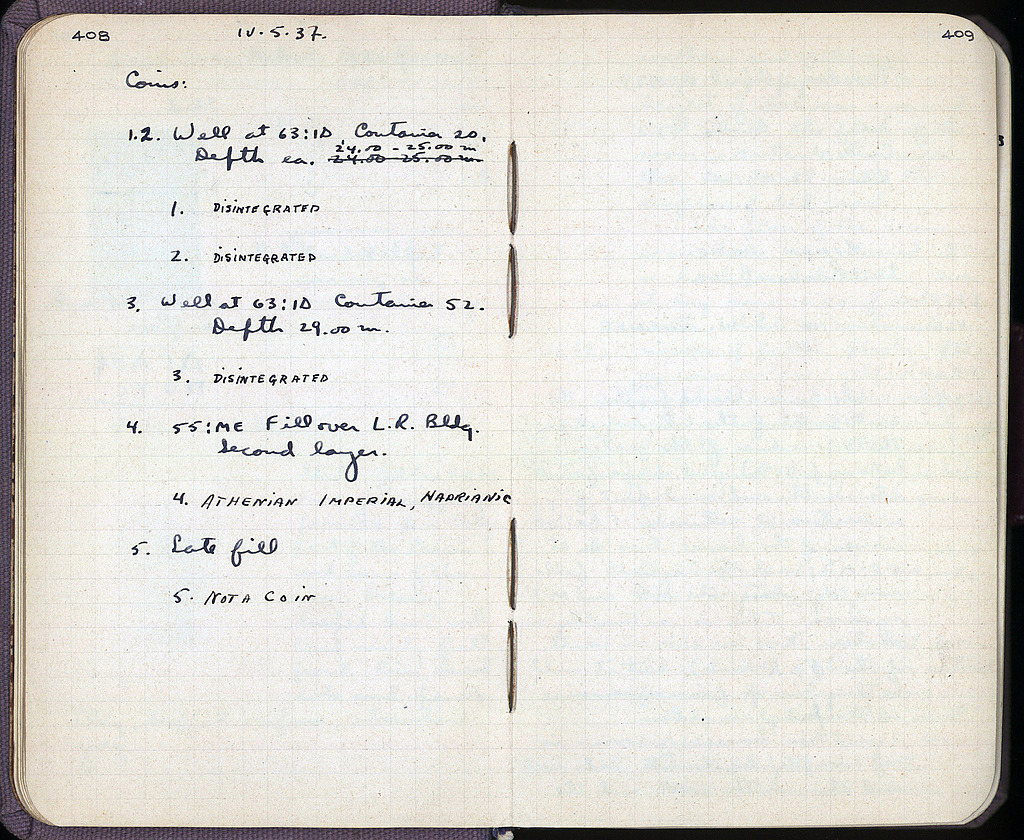 408
IV.5.37.
409
Coins:
1.2. Well at 63:ΙΔ, Container 20.
24.00 - 25.00 m
Depth ca. 24.00-25.00 m
1. DISINTEGRATED
2. DISINTEGRATED
3. Well at 63:ΙΔ Container 52.
Depth 29.00 m.
3. DISINTEGRATED
4. 55:ΜΕ Fill over L.R. Bldg.
Second layer.
4. ATHENIAN IMPERIAL, HADRIANIC
5. Late fill
5. NOT A COIN